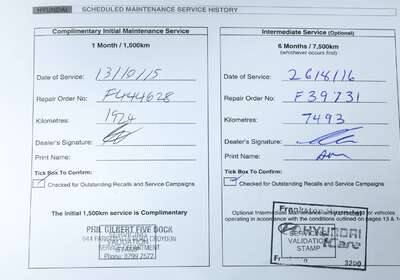 HYUNDAI SCHEDULED MAINTENANCE SERVICE HISTORY
Complimentary Initial Maintenance Service
1 Month / 1,500km
Date of Service: 13/10/15
Repair Order No: F444628
Kilometres: 1924
Dealer's Signature:
Print Name:
Tick Box To Confirm:
Checked for Outstanding Recalls and Service Campaigns
The Initial 1,500km service is Complimentary
PHIL GILBERT FIVE DOCK
SERVICE DEPARTMENT
STAMP
Phone: 8799 7572
Intermediate Service (Optional)
6 Months / 7,500km
(whichever occurs first)
Date of Service: 26/8/16
Repair Order No: F39731
Kilometres: 7493
Dealer's Signature:
Print Name:
Tick Box To Confirm:
Checked for Outstanding Recalls and Service Campaigns
Optional Intermediate Maintenance for vehicles
operating in accordance with the conditions outlined on pages 13 & 1
Frankston Hyundai
HYUNDAI
iCare
VALIDATION
STAMP
3200